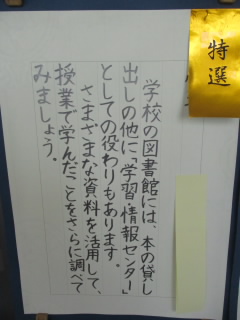 特選
学校の図書館には、本の貸し
出しの他に「学習・情報センター」
としての役わりもあります。
さまざまな資料を活用して、
授業で学んだことをさらに調べて
みましょう。